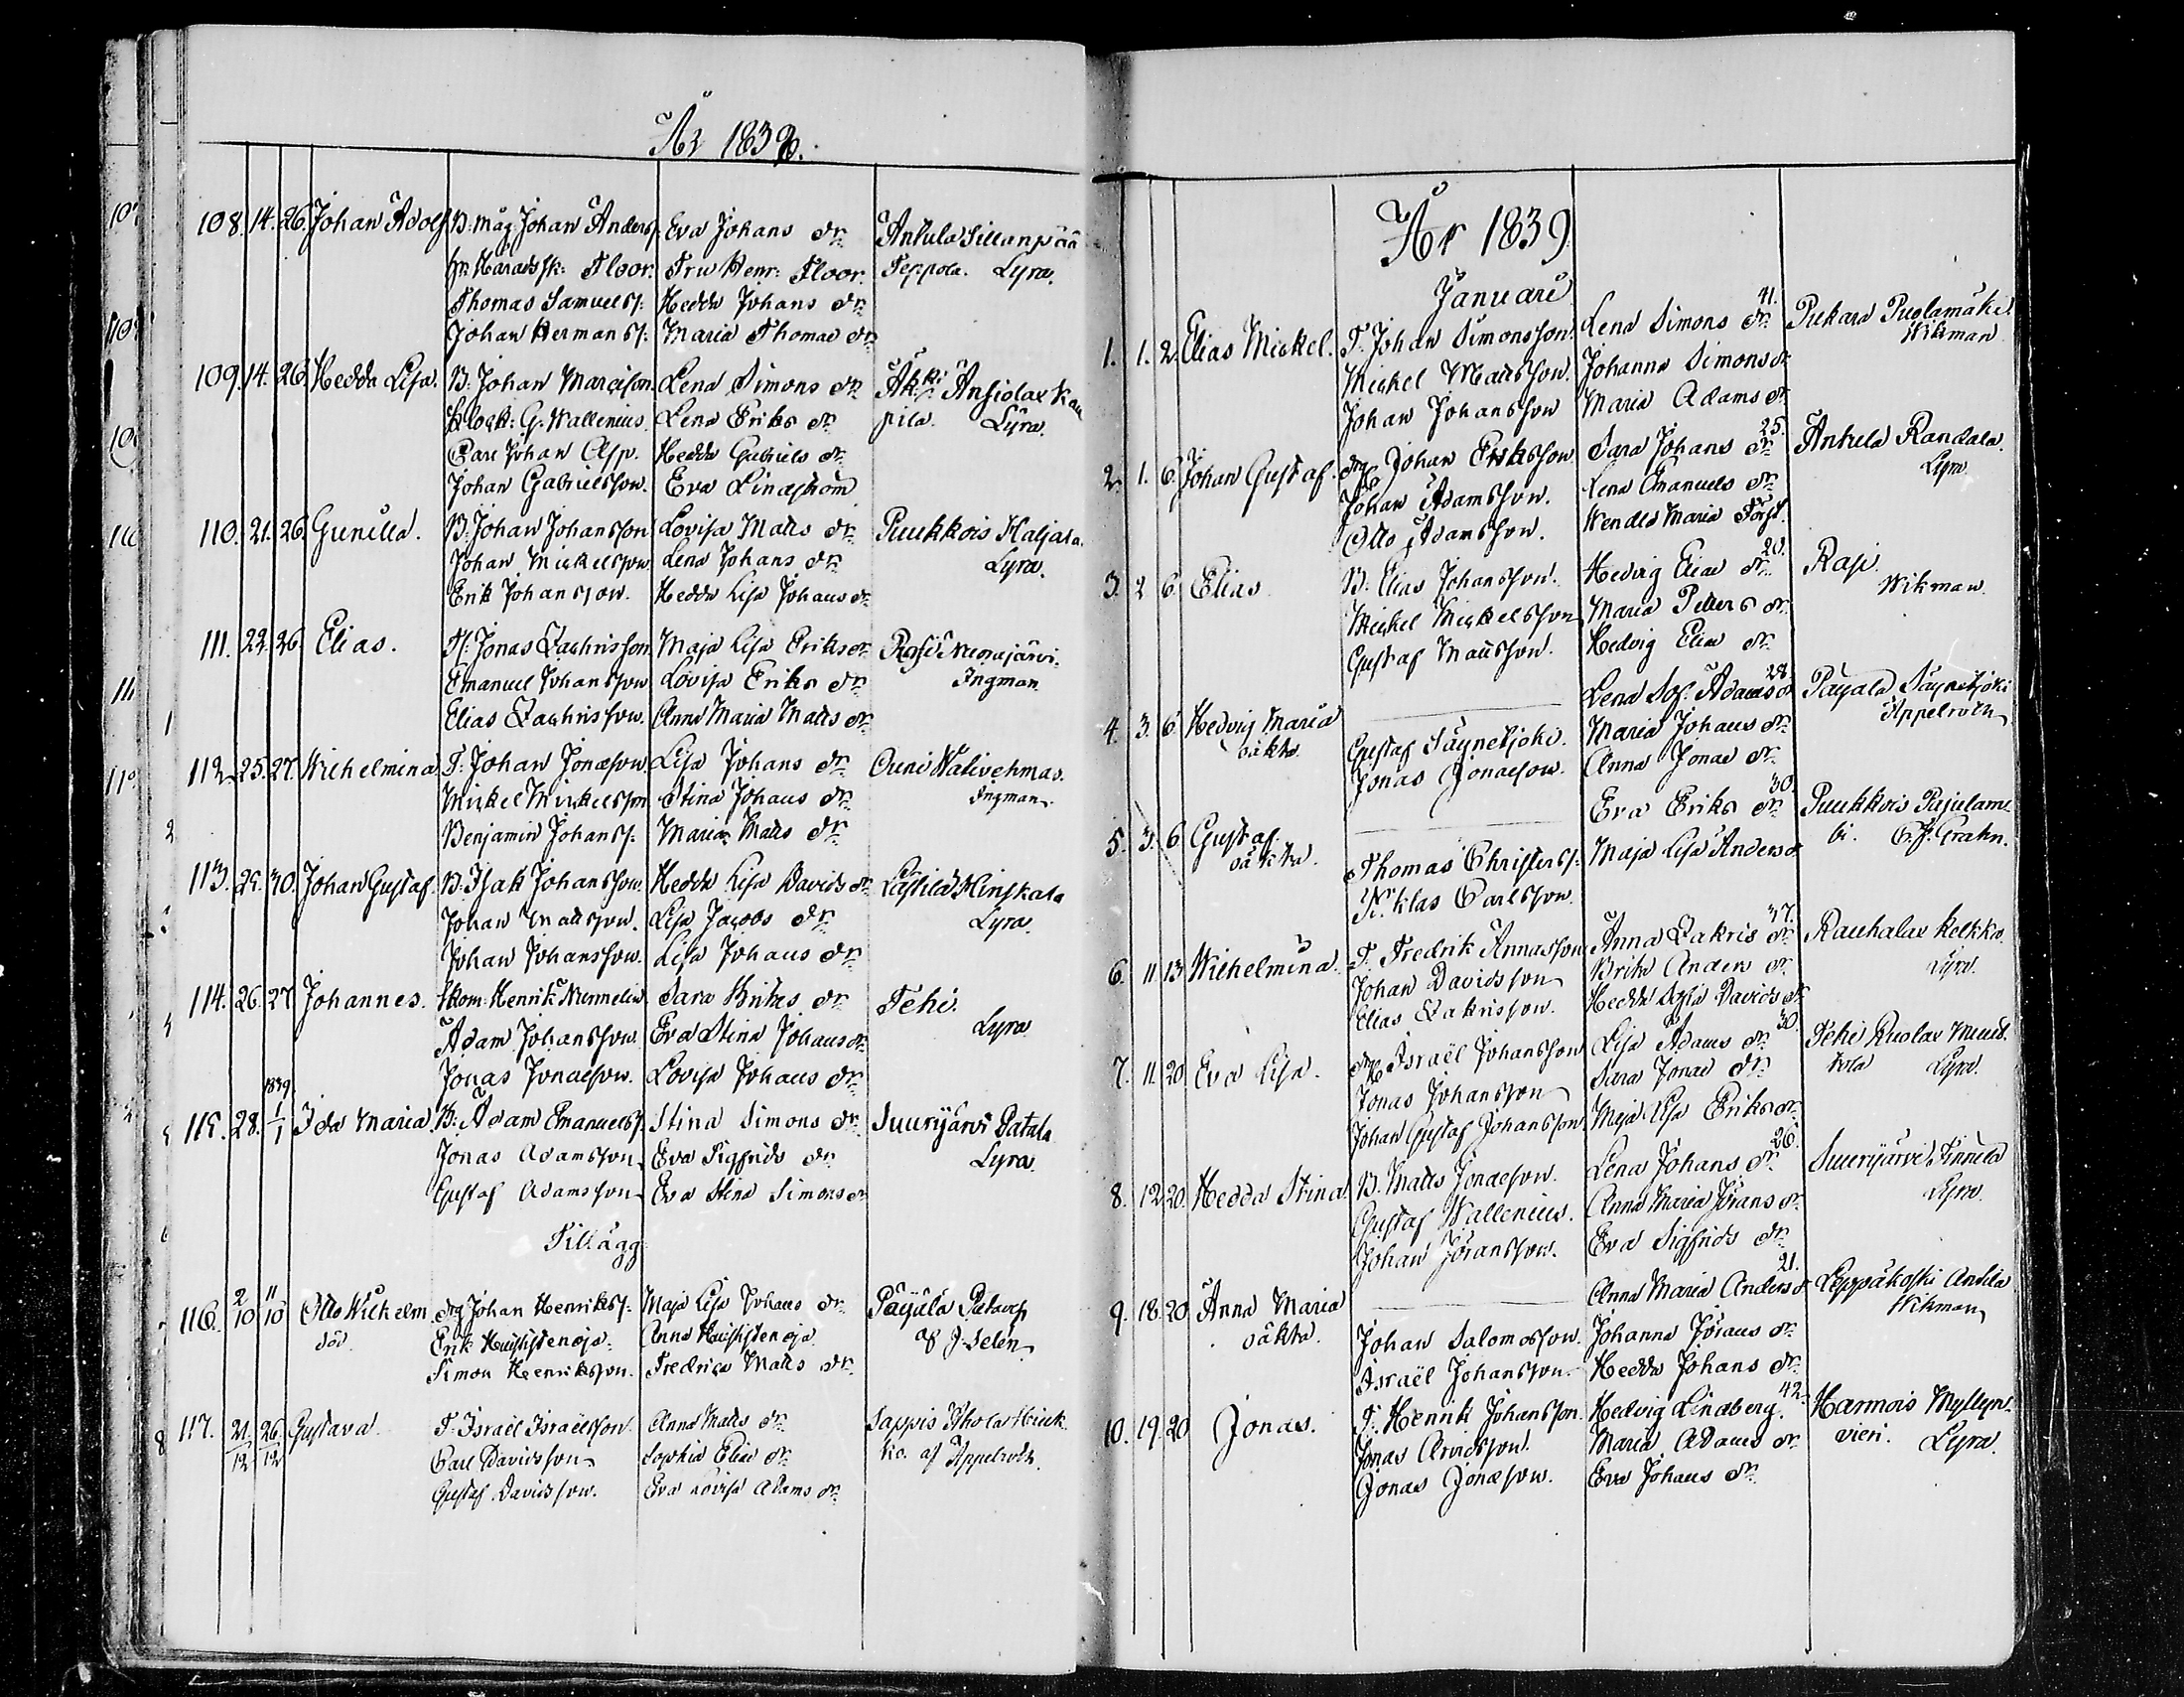 År 1838.
108. 14. 26. Johan Adolf B: måg Johan Anders: Eva Johans dr Ankula Sillanpää
Hr Häradssk: Floor. Fru Henr: Floor. Teppola. Lyra.
Thomas Samuelss: Hedda Johans dr
Johan Hermanss: Maria Thomae dr
109. 14. 26. Hedda Lisa. B: Johan Marcisson. Lena Simons dr
Klock: G. Wallenius. Lena Eriks dr pila. Lyra.
Carl Johan Asp. Hedda Gabriels dr
Johan Gabrielsson. Eva Lindström
110. 21. 26. Gunilla. B: Johan Johansson Lovisa Matts dr Puukkois Haljala.
Johan Mickelsson Lena Johans dr Lyra.
Erik Johansson. Hedda Lisa Johans dr
111. 22. 26. Elias. Jonas Zachrisson Maja Lisa Eriks dr
Emanuel Johansson Lovisa Eriks dr Ingman
Elias Zachrisson. Anna Maria Matts dr
112. 25. 27. Wilhelmina T: Johan Jonaeson. Lisa Johans dr Ouni Wälivehmas.
Mickel Mickelsson Stina Johans dr Ingman.
Benjamin Johanss: Maria Matts dr
113. 25. 30. Johan Gustaf. B. Isak Johansson. Hedda Lisa Davids dr
Johan Mattsson. Lisa Jacobs dr Lyra.
Johan Johansson. Lisa Johans dr
114. 26. 27. Johannes. Skom: Henrik Nummelin Sara Eriks dr Tehi.
Adam Johansson. Eva Stina Johans dr Lyra
Jonas Jonaeson. Lovisa Johans dr
1839
115. 28. 1/1 Ida Maria. B: Adam Emanuelss. Stina Simons dr Suurijärvi Patala
Jonas Adamsson Eva Sigfrids dr Lyra.
Gustaf Adamsson Eva Stina Simons dr
Tillägg
116. 2/10 11/10 Otto Wilhelm drg Johan Henrikss: Maja Lisa Johans dr
död. af J. Selén
Simon Henriksson. Fredrica Matts dr
117. 21/12 26/12 Gustava. T: Israël Israëlsson. Anna Matts dr
Carl Davidsson Sophia Eliae dr ko. af Appelroth.
Gustaf Davidsson. Eva Lovisa Adams dr
År 1839
Januari
1. 1. 2. Elias Mickel. T. Johan Simonsson. Lena Simons dr 41. Pukara Puolamäki
Mickel Mattsson. Johanna Simons dr Wikman
Johan Johansson Maria Adams dr
2. 1. 6. Johan Gustaf. drg Johan Eriksson Sara Johans dr 25. Ankula Randala.
Johan Adamsson. Lena Emanuels dr Lyra
Otto Adamsson. Wendla Maria
3. 2. 6. Elias B: Elias Johansson. Hedvig Eliae dr 20. Raji.
Mickel Mickelsson Maria Petters dr Wikman.
Gustaf Mattsson. Hedvig Eliae dr
4. 3. 6. Hedvig Maria Lena Sof. Adams dr 28.
oäkta. Gustaf Säynetjoki. Maria Johans dr Appelroth
Jonas Jonaeson. Anna Jonae dr
5. 3. 6. Gustaf. Eva Eriks dr 30. Puukkois Pajulam-
oäkta. Thomas Christerss: Maja Lisa Anders dr bi. Grahn.
Niklas Carlsson.
6. 11. 13. Wilhelmina. T. Fredrik Annasson Anna Zakris dr 37. Rauhalax Kolkko.
Johan Davidsson Brita Anders dr Lyra.
Elias Zakrisson. Hedda Sofia Davids dr
7. 11. 20. Eva Lisa. drg Israël Johansson Lisa Adams dr 30.
Jonas Johansson Sara Jonae dr Lyra.
Johan Gustaf Johansson. Maja Lisa Eriks dr
8. 12. 20. Hedda Stina. B. Matts Jonaeson. Lena Johans dr 26.
Gustaf Wallenius. Anna Maria Jörans dr Lyra.
Johan Jöransson. Eva Sigfrids dr
9. 18. 20 Anna Maria Anna Maria Anders dr 21. Leppäkoski Anttila
oäkta. Johan Salomosson. Johanna Jörans dr Wikman
Israël Johansson Hedda Johans dr
10. 19. 20 Jonas. T: Henrik Johansson Hedvig Lindberg. 42. Hannois Myllyn-
Jonas Arvidsson. Maria Adams dr vieri. Lyra.
Jonas Jonaeson. Eva Johans dr